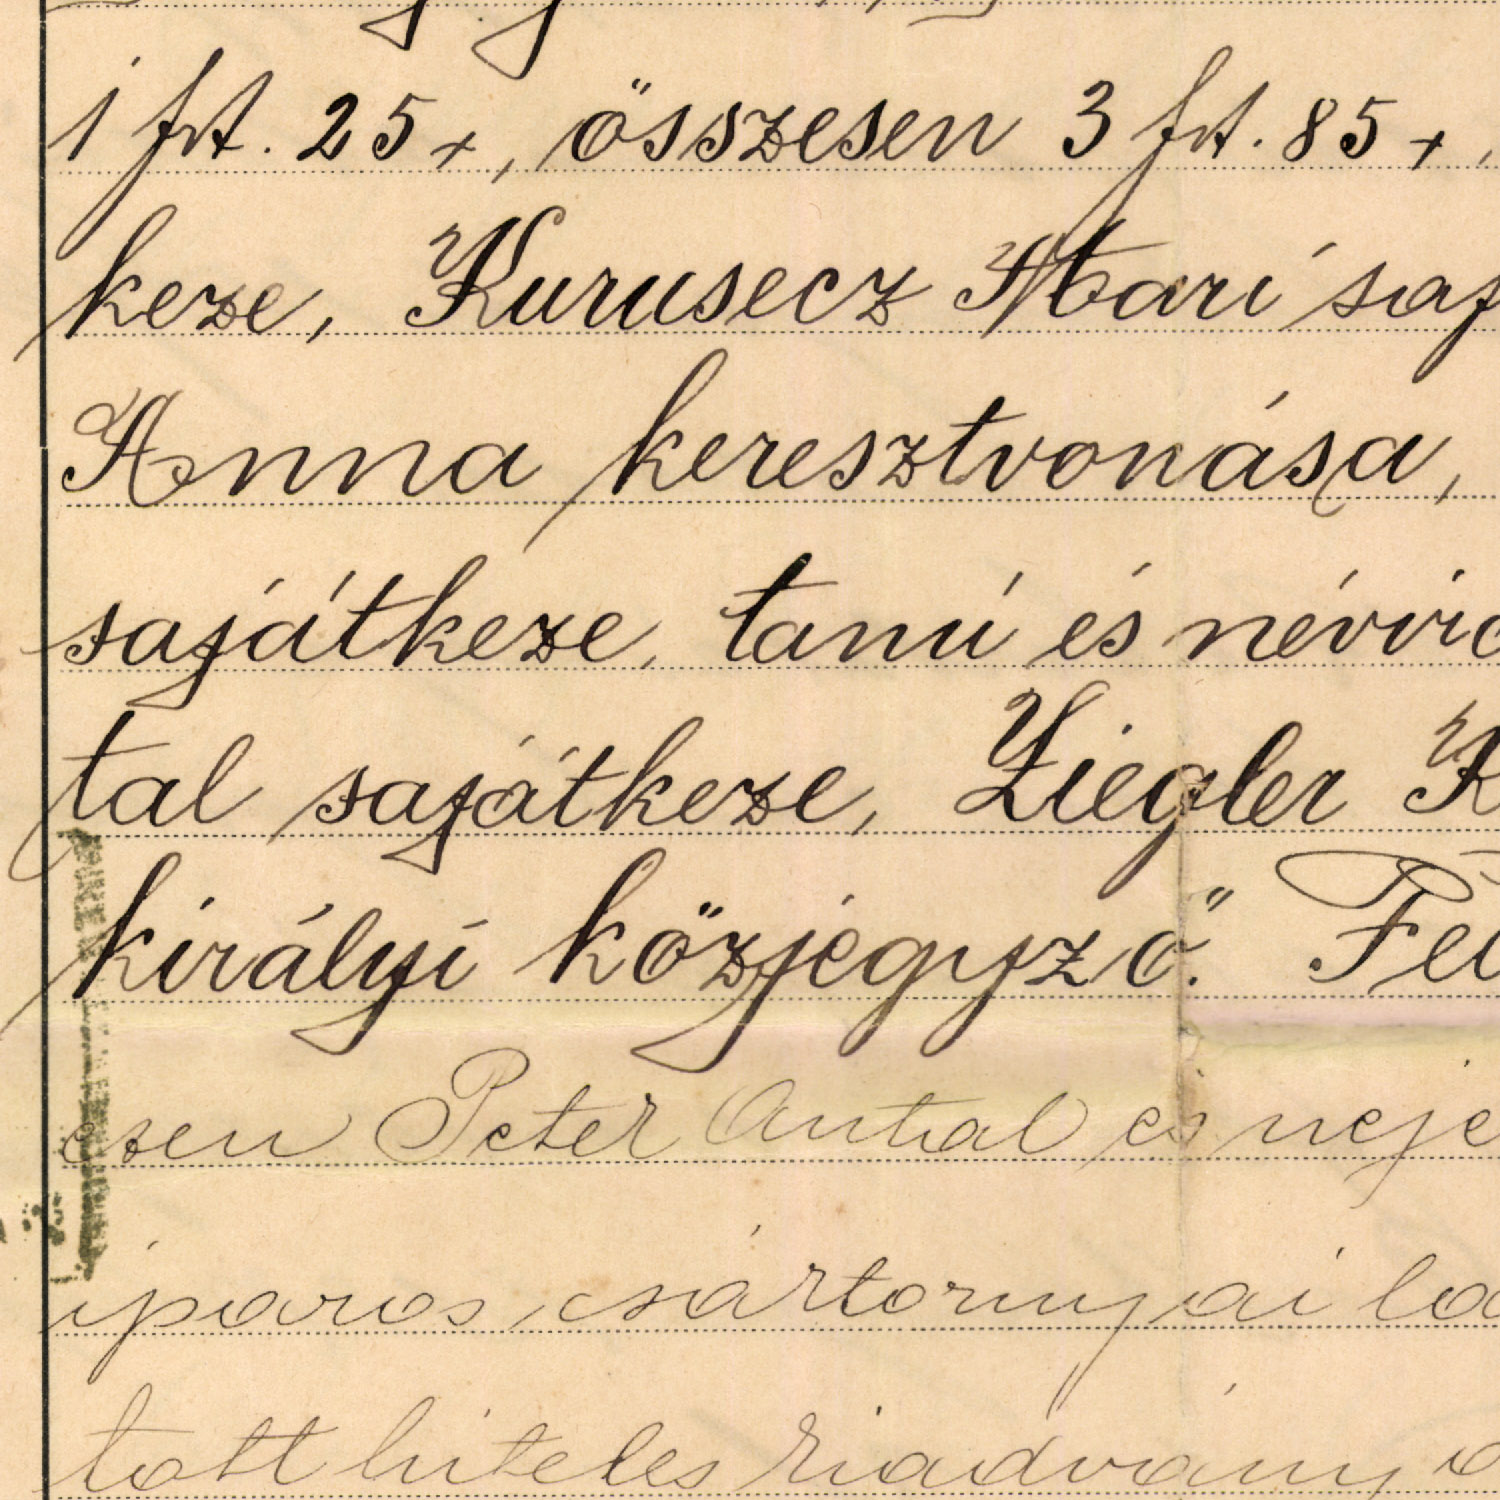 1 frt. 25 x, összesen 3 frt. 85 x,
keze, Kurusecz Mari saj
Anna keresztvonása,
sajátkeze, tanú és névvic
tal sajátkeze, Ziegler K
királyi közjegyző." Fel
esen Peter Antal és neje
iparos, csártornyai la
tott hiteles kiadvány